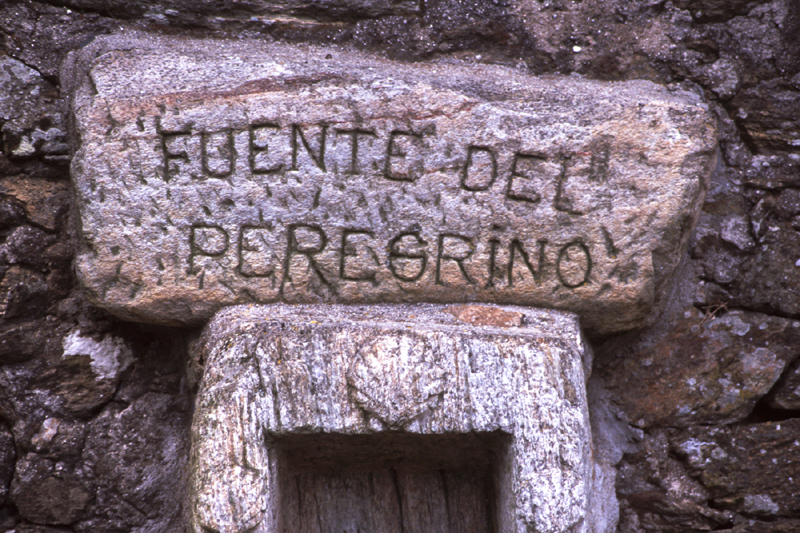 FUENTE DEL
PEREGRiNO